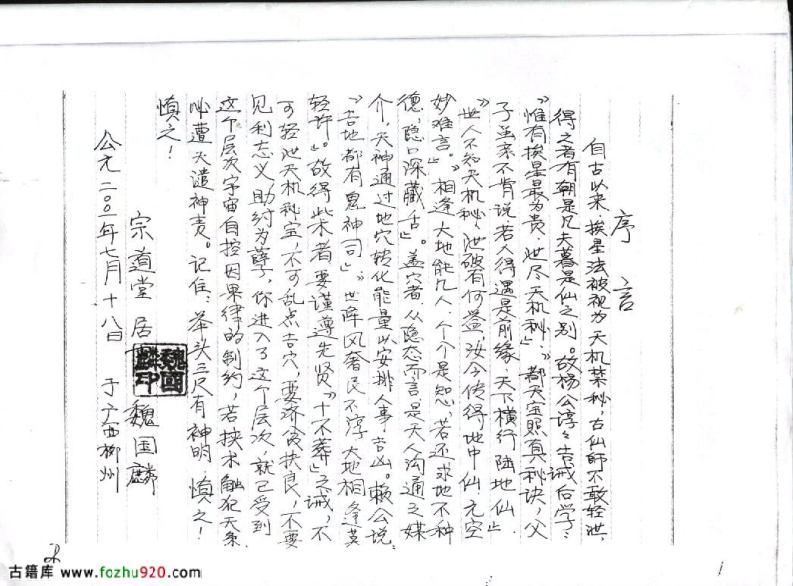 序言
自古以来，挨星法被视为天机禁秘，古仙师不敢轻泄，
得之者有朝是凡夫暮是仙之别。故杨公谆谆告诫后学：
“惟有挨星最为贵，泄尽天机秘。”“都天宝照真秘诀，父
子虽亲不肯说，若人得遇是前缘，天下横行陆地仙。”
“世人不知天机秘，泄破有何益，汝今传得地中仙，元空
妙难言。”“相逢大地能几人，个个是知心，若还求地不种
德，隐口深藏舌”。盖穴者，从隐态而言是天人沟通之媒
介，天神通过地穴转化能量以安排人事吉凶。赖公说：
“吉地都有鬼神司”，“世降风奢民不淳，大地相逢莫
轻许”。故得此术者要谨遵先贤“十不葬”之诫，不
可轻泄天机秘宝，不可乱点吉穴，要济贫扶良，不要
见利忘义，助纣为孽，你进入了这个层次，就已受到
这个层次宇宙自控因果律的制约，若挟术触犯天条
必遭天谴神责。记住：举头三尺有神明，慎之！
慎之！
宗道堂居 魏国麟
魏國麟印
公元二00一年七月十八日 于广西柳州
1
古籍库 www.fozhu920.com